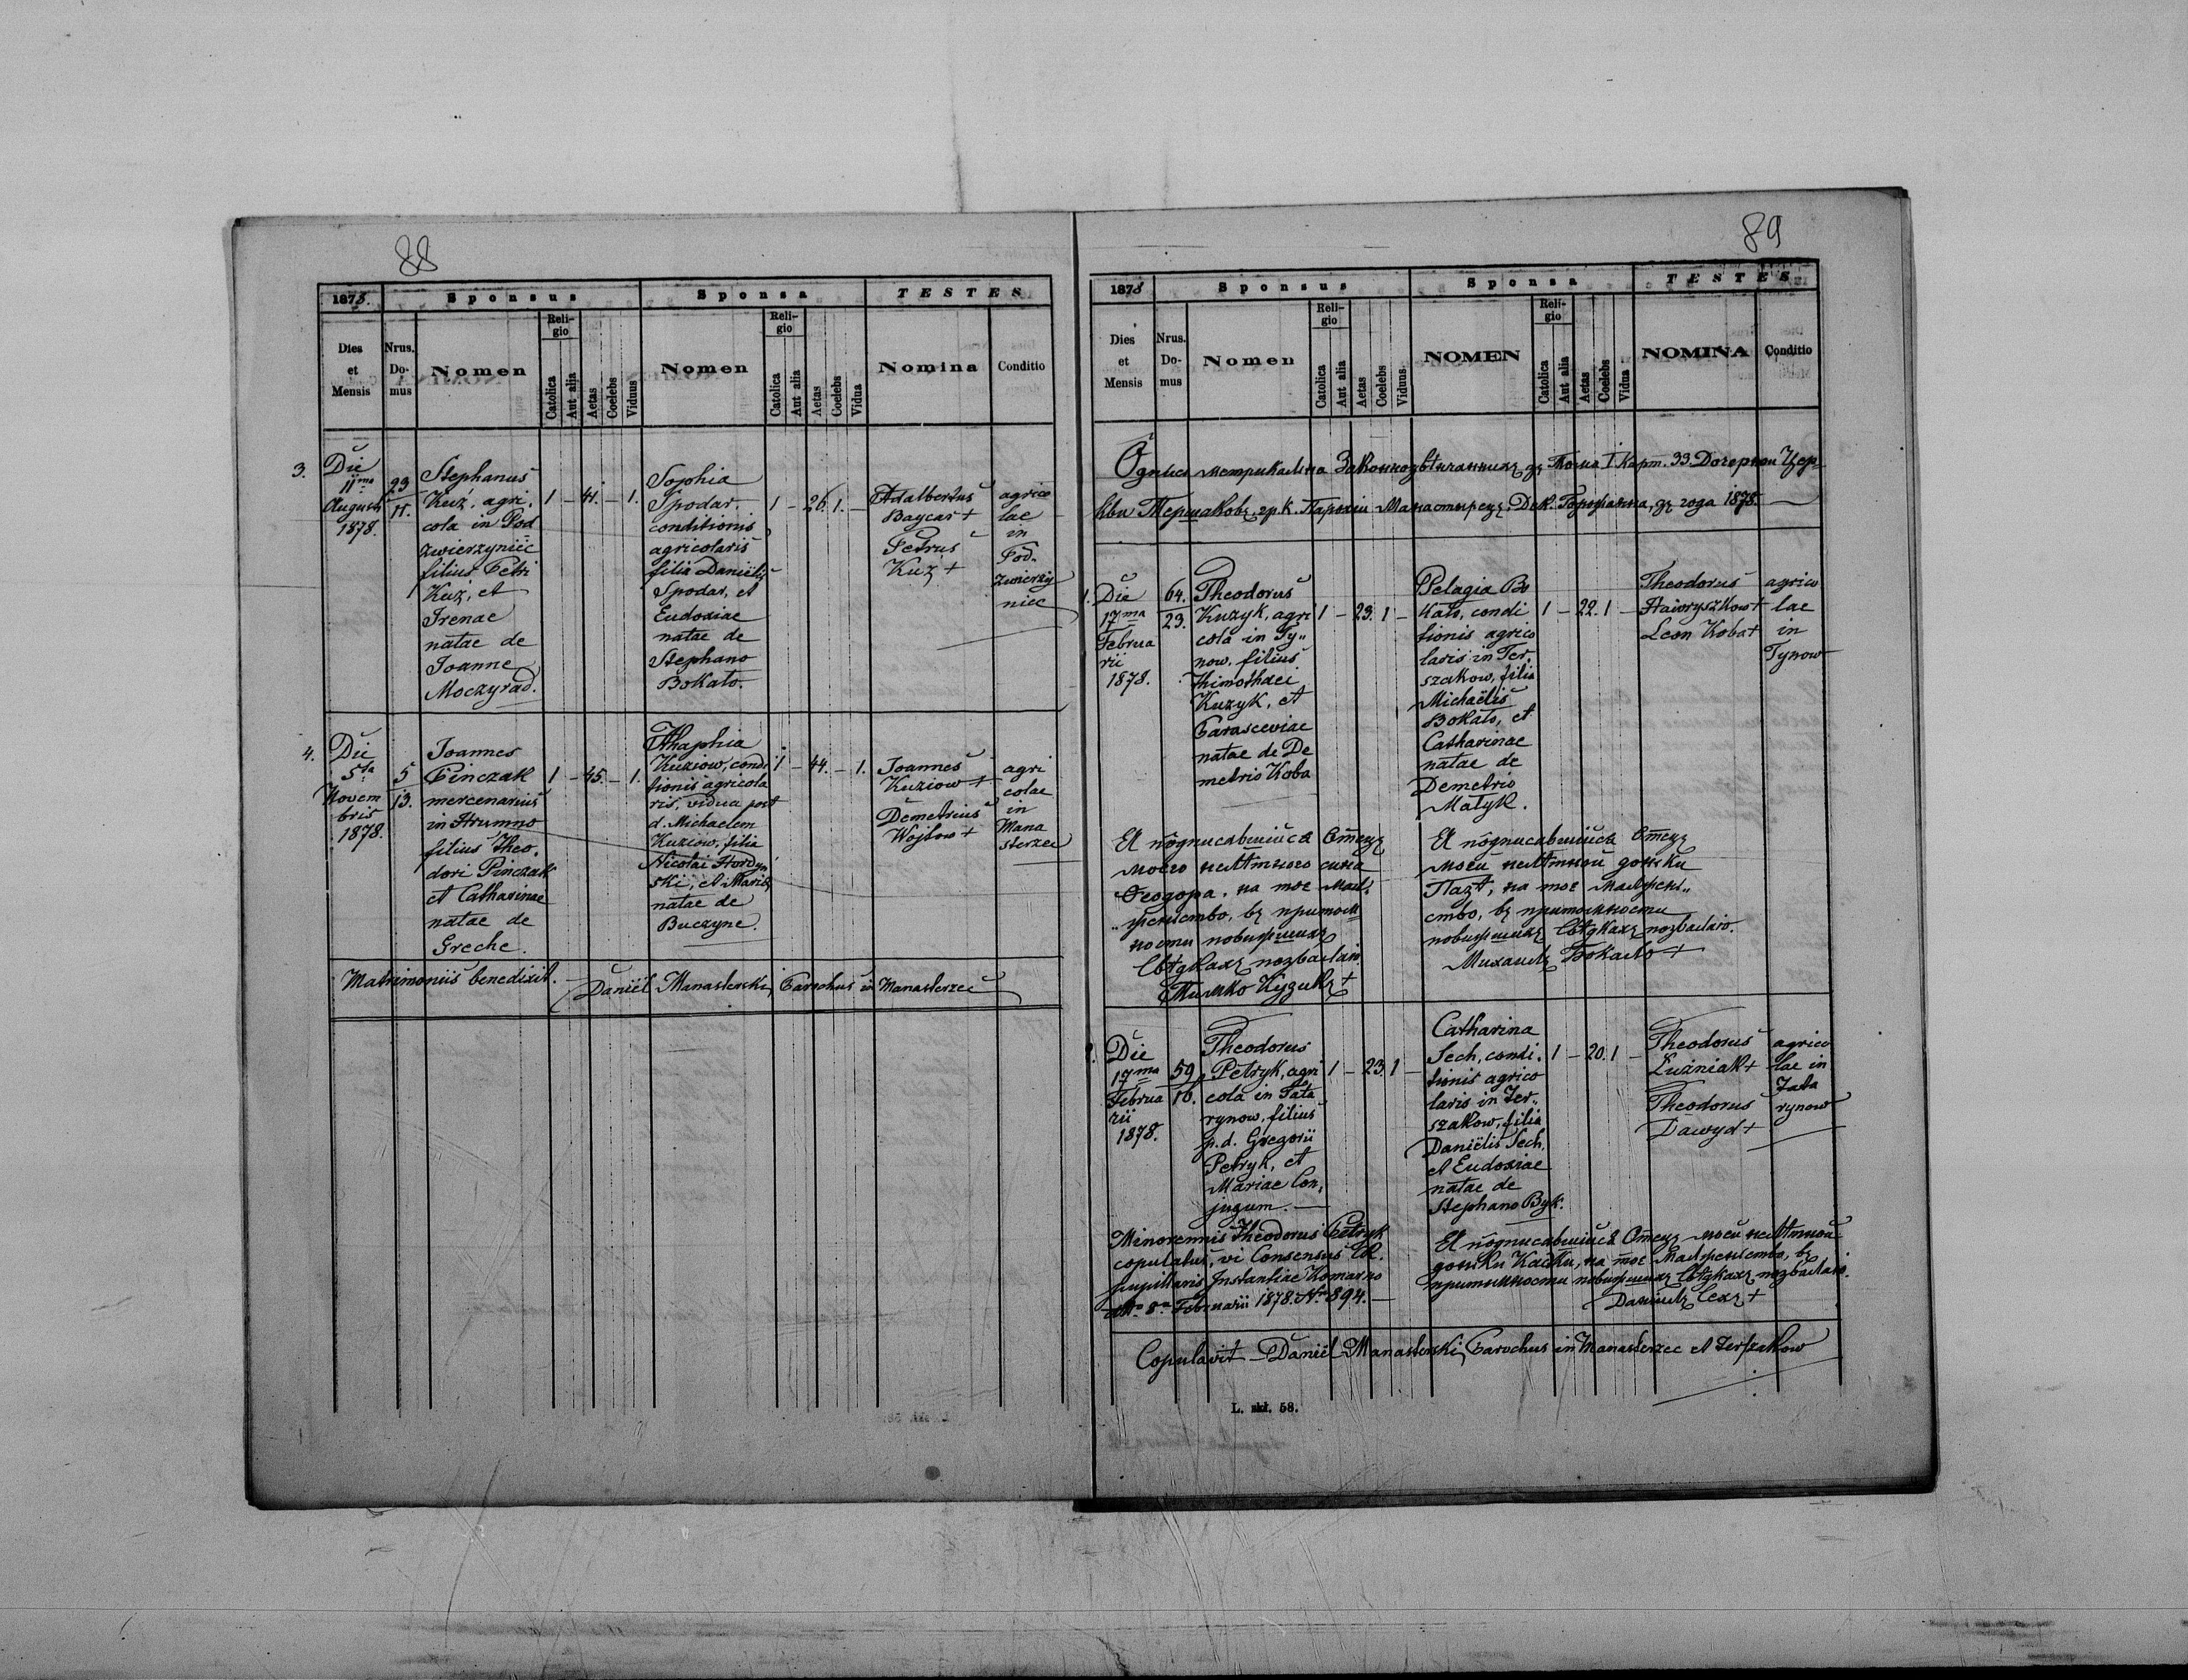 88
1878.
Sponsus
Sponsa
TESTES
Dies et Mensis
Nrus. Domus
Nomen
Religio
Catolica
Aut alia
Aetas
Coelebs
Viduus
Nomen
Religio
Catolica
Aut alia
Aetas
Coelebs
Vidua
Nomina
Conditio
3.
Die
11ma
Augusti
1878.
23
11.
Stephanus
Kuź, agri
cola in Pod
zwierzyniec
filius Petri
Kuz, et
Irenae
natae de
Joanne
Moczyrad.
1 – 41. – 1.
Sophia
Spodar.
conditionis
agricolaris
filia Daniëlis
Spodar, et
Eudoxiae
natae de
Stephano
Bokało.
1 – 26. 1. –
Adalbertus
Baycar +
Petrus
Kuz +
agrico
lae
in
Pod
zwierzy
niec
4.
Die
5ta
Novem
bris
1878.
5
13.
Joannes
Pinczak
mercenarius
in Hrumno
filius Theo,
dori Pinczak
et Catharinae
natae de
Greche.
1 – 45. – 1.
Ahaphia
Kuziow, condi
tionis agricola
ris, vidua post
d. Michaelem
Kuziow, filia
Nicolai Hordyn
ski, et Maria
natae de
Buczyne.
1 – 44. – 1.
Joannes
Kuziow +
Demetrius
Wojtow +
agri
colae
in
Mana
sterzec
Matrimoniis benedixit. – Daniël Manasterski, Parochus in Manasterzec
89
1878
Sponsus
Sponsa
TESTES
Dies et Mensis
Nrus. Domus
Nomen
Religio
Catolica
Aut alia
Aetas
Coelebs
Viduus
NOMEN
Religio
Catolica
Aut alia
Aetas
Coelebs
Vidua
NOMINA
Conditio
Ôдписъ метрикальна Законновѣнчанныхъ зъ Тома I. Карт. 33. Дочернои Цер=
кви Тершаковъ гр. к. Парохіи Манастырецъ, Дек. Горожанна, зъ года 1878. –
1.
Die
17ma
Februa
rii
1878.
64.
23.
Theodorus
Kuzyk, agri
cola in Ty„
now, filius
Thimothaei
Kuzyk, et
Parasceviae
natae de De
metrio Koba
1 – 23. 1 –
Pelagia Bo
kało, condi
tionis agrico
laris in Ter,
szakow, filia
Michaëlis
Bokało, et
Catharinae
natae de
Demetrio
Małyk.
1 – 22. 1 –
Theodorus
Hawryszkow +
Leon Koba +
agrico
lae
in
Tynow
Я пôдписавшійся Отецъ
моего нелѣтного сина
Ѳеодора, на тое мал„
„женьство, въ притом=
ности повысшихъ
Свѣдкахъ позваляю
Тимко Кузикъ +
Я пôдписавшійся Отецъ
моеи нелѣтнои доньки
Пазѣ, на тое малжень„
ство, въ притомности
повысшихъ Свѣдкахъ позваляю.
Михаилъ Бокало +
Die
17ma
Februa
rii
1878.
59,
16.
Theodorus
Petryk, agri
cola in Tata
rynow, filius
p. d. Gregorii
Petryk, et
Mariae Con,
jugum. –
1 – 23. 1 –
Catharina
Sech, condi,
tionis agrico
laris in Ter„
szakow, filia
Daniëlis Sech,
et Eudoxiae
natae de
Stephano Byk.
1 – 20. 1 –
Theodorus
Luzniak +
Theodorus
Dawyd +
agrico
lae in
Tata
rynow
Minorennis Theodorus Petryk
copulatus, vi Consensus
pupillaris Instantiae Komarno
8a Februarii 1878. No 894. –
Я пôдписавшійся Отецъ моеи нелѣтнои
доньки Каськи, на тое Малженьство, въ
притомности повысшихъ Свѣдкахъ позваляю.
Даниилъ Сехъ +
Copulavit – Daniël Manasterski, Parochus in Manasterzec et Terszakow
L. skł. 58.